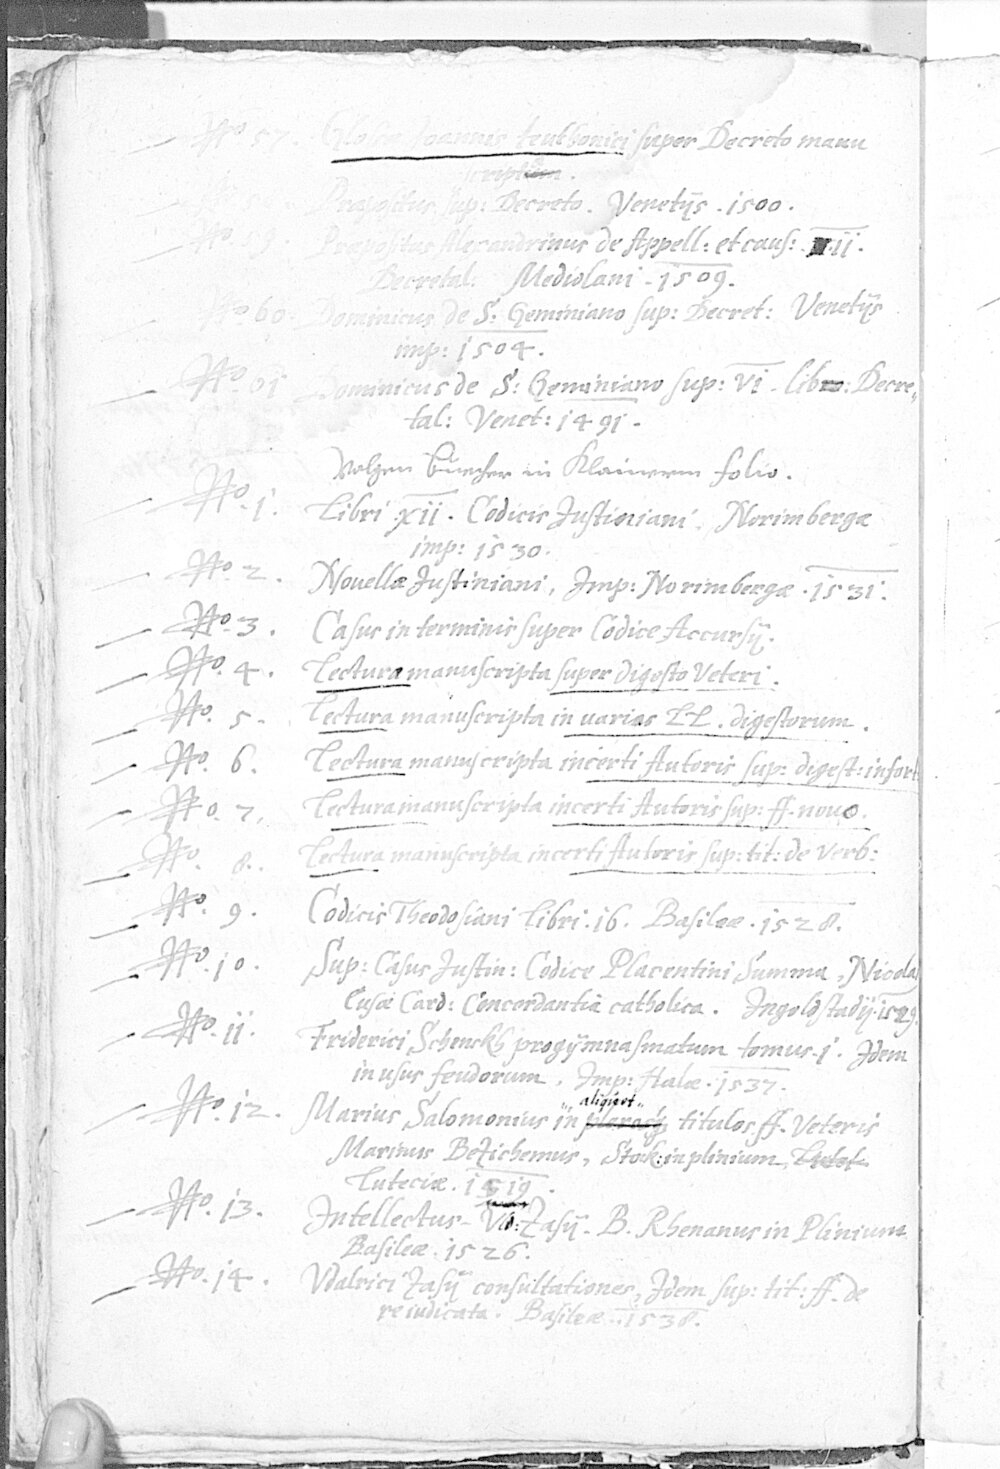 No 57. Glosæ Joannis teuthonici super Decreto manu
scriptum.
Præpositus sup: Decreto. Venetijs. 1500.
No 59. Præpositus Alexandrinus de Appell: et caus: II.
Decretal: Mediolani. 1509.
No. 60. Dominicus de S: Geminiano sup: Decret: Venetijs
imp: 1504.
No. 61 Dominicus de S: Geminiano sup: VI. libro: Decre„
tal: Venet: 1491.
Volgen Buecher in Klainerem folio.
No. 1. Libri XII. Codicis Justiniani. Norimbergæ
imp: 1530.
No. 2. Novellæ Justiniani, Imp: Norimbergæ. 1531.
No. 3. Casus in terminis super Codice Accursij.
No. 4. Lectura manuscripta super digesto Veteri.
No. 5. Lectura manuscripta in varias LL. digestorum.
No. 6. Lectura manuscripta incerti Autoris sup: digest: infort
No. 7. Lectura manuscripta incerti Autoris sup: ff. novo.
No. 8. Lectura manuscripta incerti Autoris sup: tit: de Verb:
No. 9. Codicis Theodosiani Libri. 16. Basileæ. 1528.
No. 10. Sup: Casus Justin: Codice Placentini Summa, Nicola
Cusæ Card: Concordantia catholica. Ingolstadij. 1529.
No. 11. Friderici Schenckh progymnasmatum tomus. 1. Idem
in usus feudorum. Imp: Halæ. 1537.
No. 12. Marius Salomonius in „aliquot„ titulos ff. Veteris
Marinus Bezichemus, in plinium,
Luteciæ. 1519.
No. 13. Intellectus Vd: Zasij. B. Rhenanus in Plinium
Basileæ. 1526.
No. 14. Vdalrici Zasij consultationes, Idem sup: tit: ff. de
re iudicata. Basileæ. 1538.